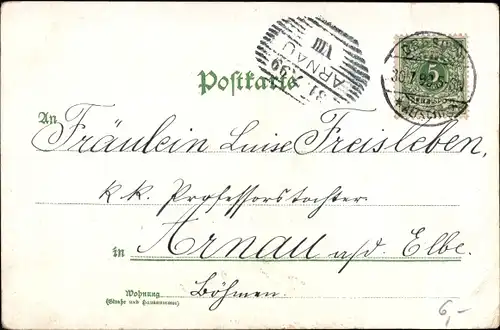 Postkarte
ARNAU
31 7 99
VIII
5
An
Fräulein Luise Freisleben,
k. k. Professorstochter
in Arnau a/d. Elbe.
Wohnung
(Straße und Hausnummer)
Böhmen.
6,-